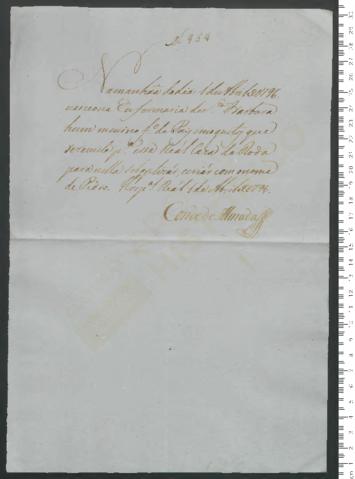 Nº 959
Na manhãa do dia 1 de Abril de 1796
nasceo na Enfermaria de S.ta Barbara
hum menino f.º de Pays
que
se remete p.ª essa Real Caza da Roda
para nella se baptizar, e criar com o nome
de Pedro. Hosp.al Real 1 de Abril de 1796.
Conde de Almada